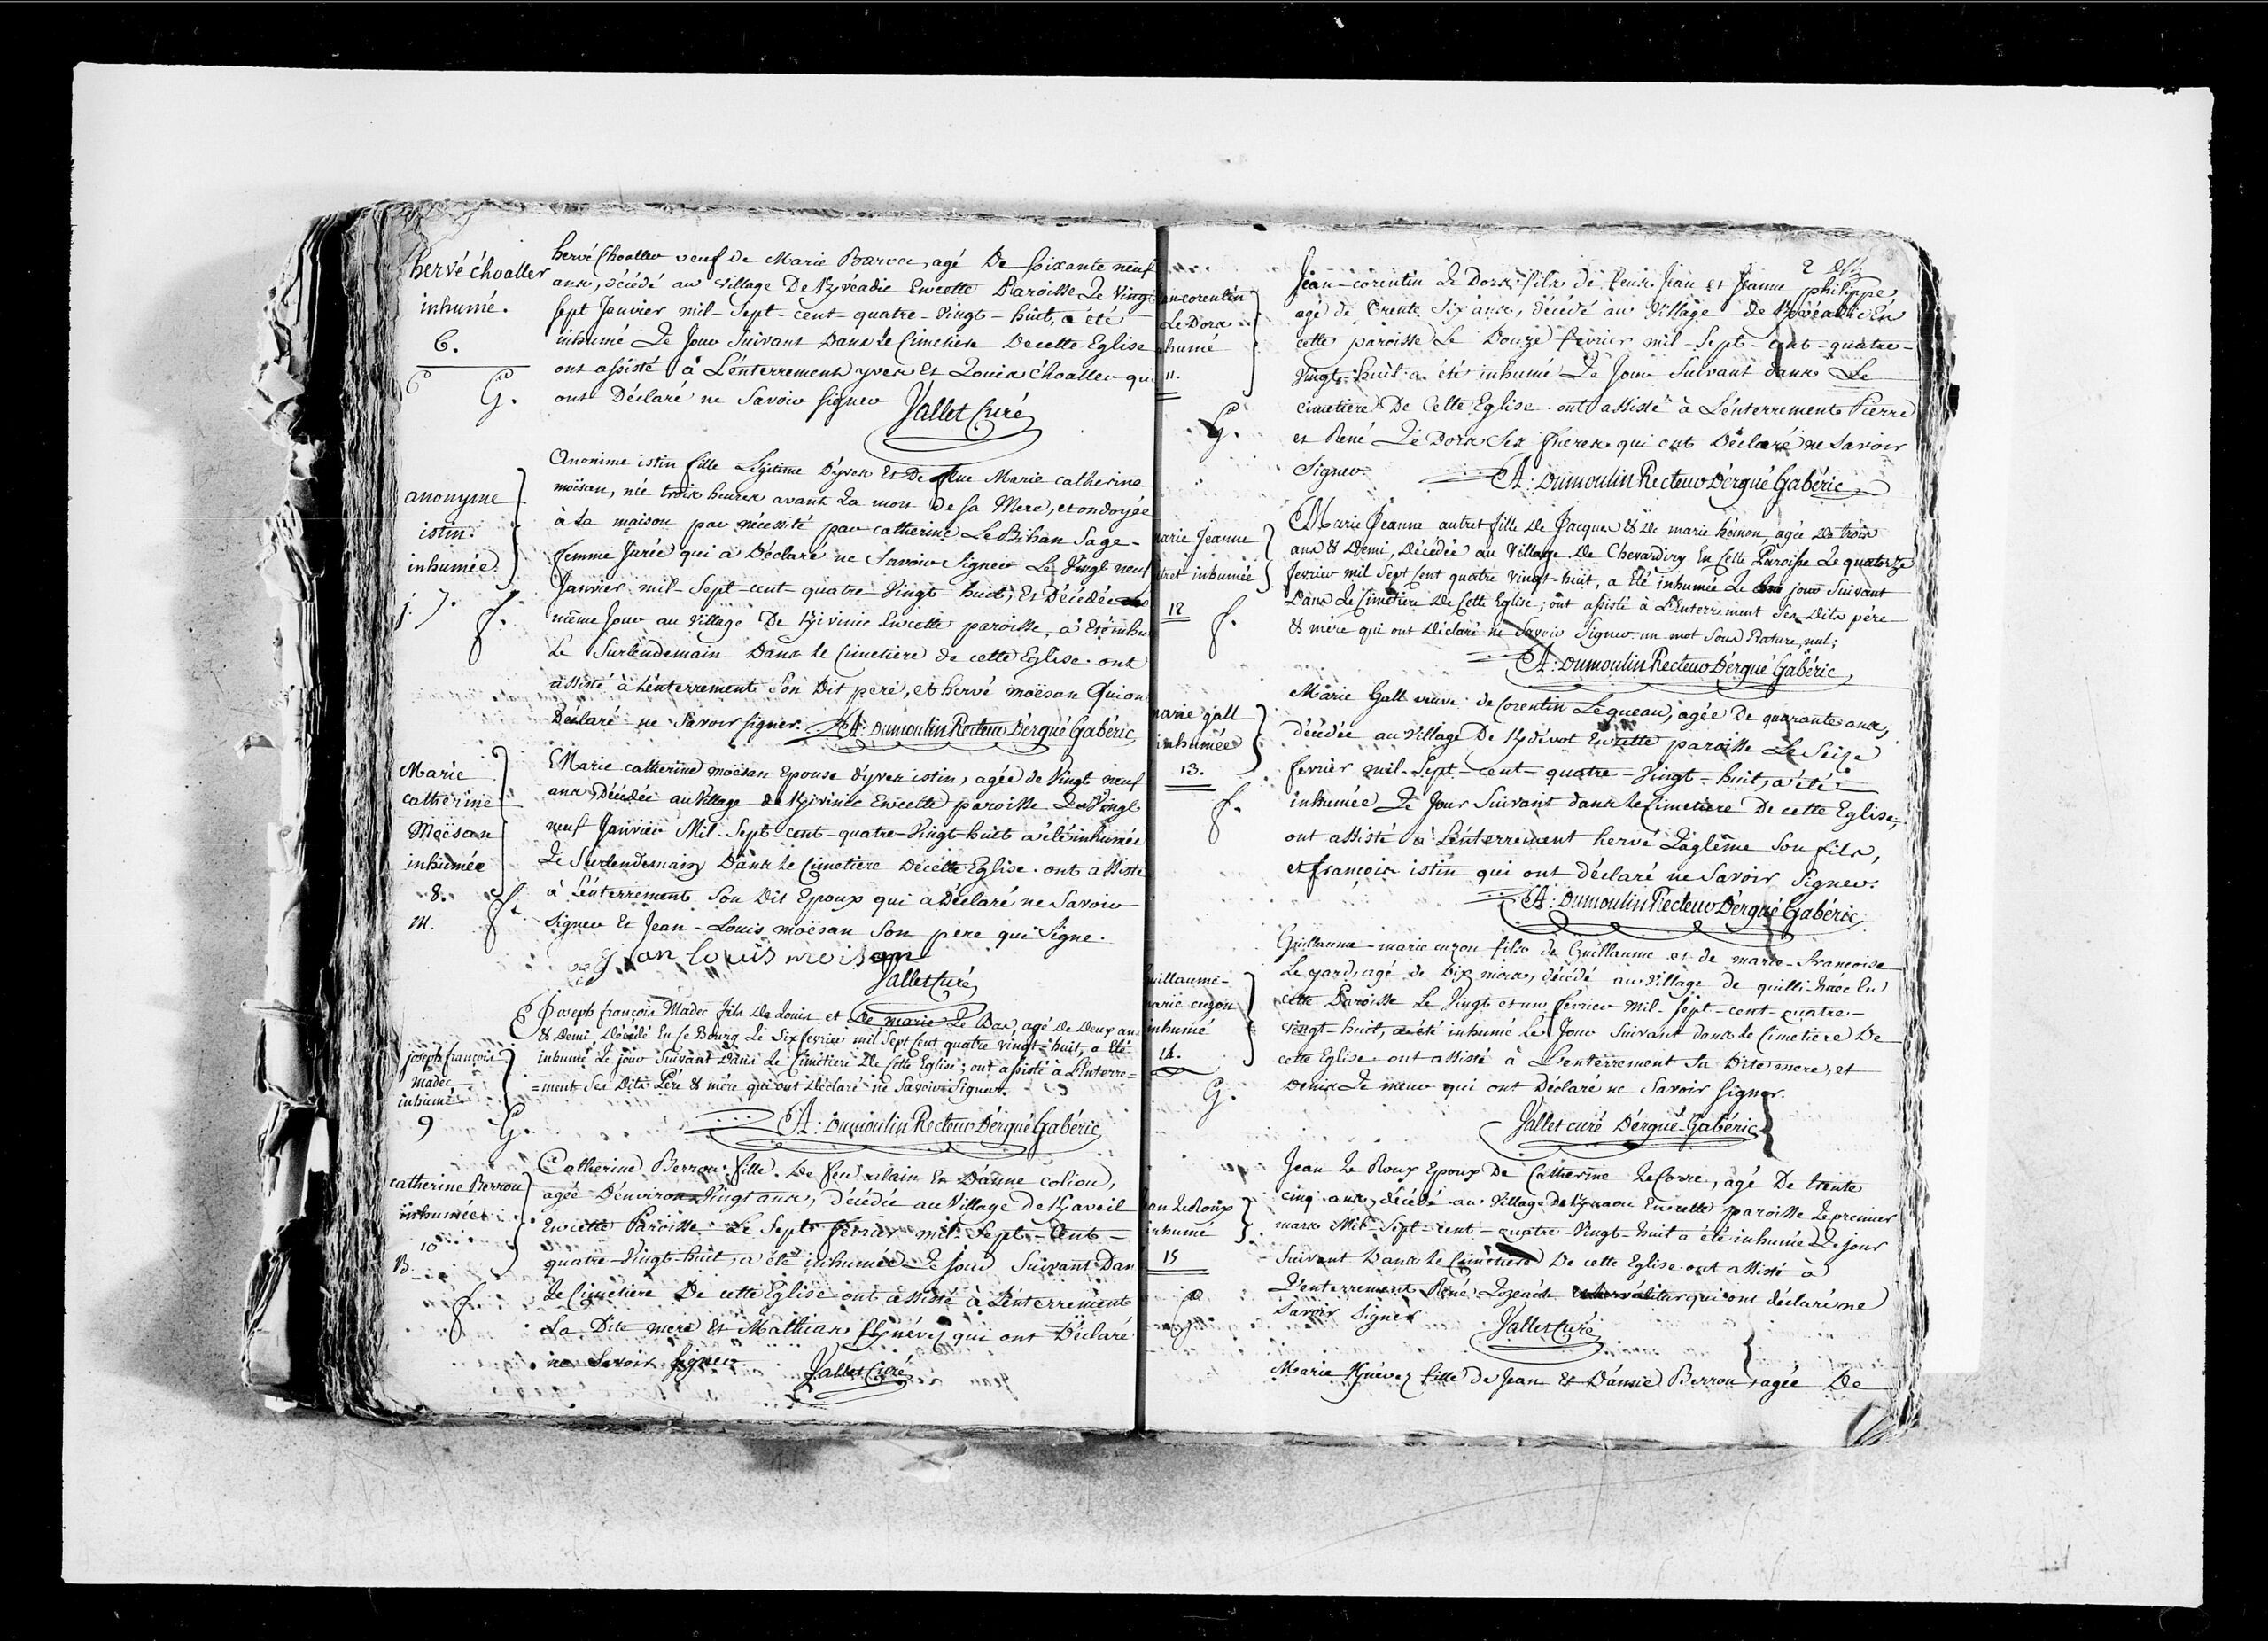 hervé Choaller
inhumé.
6.
G.
hervé Choaller veuf de Marie Barva, agé De soixante neuf
ans, décédé au village De Kvéadic Encette Paroisse Le Vingt
sept Janvier mil-Sept-cent-quatre-vingt-huit, a été
inhumé Le Jour Suivant Dans le Cimetiere Decette Eglise
ont assisté à L'enterrement yves Et Louis Choaller qui
ont Déclaré ne Savoir signer Jallet Curé
anonyme
istin.
inhumée.
j. 7. f.
Anonime istin fille Légitime D'yves Et De feue Marie catherine
moësan, née trois heures avant La mort De sa Mere, et ondoyée
à La maison par nécessité par catherine Le Bihan Sage-
femme Jurée qui a Déclaré ne Savoir Signer Le Vingt neuf
Janvier mil-Sept-cent-quatre-Vingt-huit, Et Décédée
même Jour au village De Kivinic Encette paroisse, a été inhu
Le Surlendemain Dans le Cimetiere de cette Eglise. ont
assisté à L'enterrement Son Dit peré, et hervé moësan Qui on
Déclaré ne Savoir signer. A: Dumoulin Recteur D'ergué Gabéric
Marie
catherine
Moësan
inhumée
8.
M. f.
Marie catherine moësan Epouse d'yves istin, agée de Vingt neuf
ans, Décédée au Village de Kivinic Encette paroisse Le Vingt
neuf Janvier Mil-Sept-cent-quatre-Vingt-huit a été inhumée
Le Surlendemain Dans le Cimetiere Decette Eglise. ont assisté
à L'enterrement Son Dit Epoux qui a Déclaré ne Savoir
signer Et Jean-Louis moësan Son pere qui Signe.
jan louis moisan
Jallet Curé
joseph françois
madec
inhumé
9 G.
Joseph françois Madec fils De Louis et De marie Le Bas, agé De Deux ans
& Demi, Décédé En Ce Bourg Le Six fevrier mil Sept Cent quatre vingt-huit, a Eté
inhumé Le jour Suivant Dans Le Cimetiere De Cette Eglise; ont assisté à L'Enterre=
=ment Ses Dits Père & mère qui ont Déclaré ne Savoir Signer.
A: Dumoulin Recteur D'ergué Gabéric
catherine Berrou
inhumée
10
B.
f.
Catherine Berrou fille. De feu alain Et D'anne coliou,
agée D'environ Vingt ans, décédée au Village de Kavoil
Encette Paroisse Le Sept fevrier mil-Sept-Cent-
quatre-Vingt-huit, a été inhumée Le jour Suivant Dan
Le Cimetiere De cette Eglise ont assisté à L'enterrement
La Dite mere Et Mathias Kynévez qui ont Déclaré
ne Savoir signer Jallet Curé
encorentin
Le Dors
humé
11.
G.
Jean-corentin Le Dors fils de feus Jean et Jeanne philippe
agé de Trente Six ans, décédé au Village De Kvéadic En
cette paroisse Le Douze fevrier mil-Sept-cent-quatre-
Vingt-huit a été inhumé Le Jour Suivant dans Le
cimetiere De Cette Eglise. ont assisté à L'enterrement Pierre
et René Le Dors Ses freres qui ont Déclaré ne Savoir
Signer. A: Dumoulin Recteur D'ergué Gabéric
arie Jeanne
tret inhumée
12
f.
Marie Jeanne autret fille De Jacques & De marie hémon, agée De trois
ans & Demi, Décédée au Village De Chevardiry En Cette Paroisse Le quatorze
fevrier mil Sept Cent quatre Vingt-huit, a Eté inhumée Le jour Suivant
Dans Le Cimetiere De Cette Eglise; ont assisté à L'Enterrement Ses Dits père
& mère qui ont Déclaré ne Savoir Signer. un mot Sous Rature, nul;
A: Dumoulin Recteur D'ergué Gabéric
arie gall
inhumée
13.
f.
Marie Gall veuve de Corentin Lequeau, agée De quarante ans,
décédée au Village De Kdévot Encette paroisse Le Seize
fevrier mil-Sept-cent-quatre-Vingt-huit, a été
inhumée Le Jour Suivant dans le Cimetiere De cette Eglise,
ont assisté à L'enterrement hervé Laglême Son fils,
et françois istin qui ont déclaré ne Savoir Signer.
A: Dumoulin Recteur D'ergué Gabéric
uillaume-
arie cuzon
inhumé
14.
G.
Guillaume-marie cuzon fils de Guillaume et de marie-françoise
Le gard, agé de Dix mois, décédé au Village de quilli-huéc En
cette Paroisse Le Vingt et un fevrier mil-sept-cent-quatre-
vingt-huit, a été inhumé Le Jour Suivant dans Le Cimetiere De
cette Eglise. ont assisté à L'enterrement Sa Dite mere, et
Denis Le meur qui ont Déclaré ne Savoir signer.
Jallet curé D'ergué-Gabéric
an Le Roux
inhumé
15
Jean Le Roux Epoux De Catherine Le Corre, agé De trente
cinq ans, décédé au Village De Kraou Encette paroisse Le premier
mars Mil-Sept-cent-quatre-Vingt-huit a été inhumé Le jour
Suivant Dans Le Cimetiere De cette Eglise ont assisté à
L'enterrement René Lozeach qui ont déclaré ne
Savoir Signer Jallet Curé
Marie Kynévez fille de Jean Et D'annie Berrou, agée De